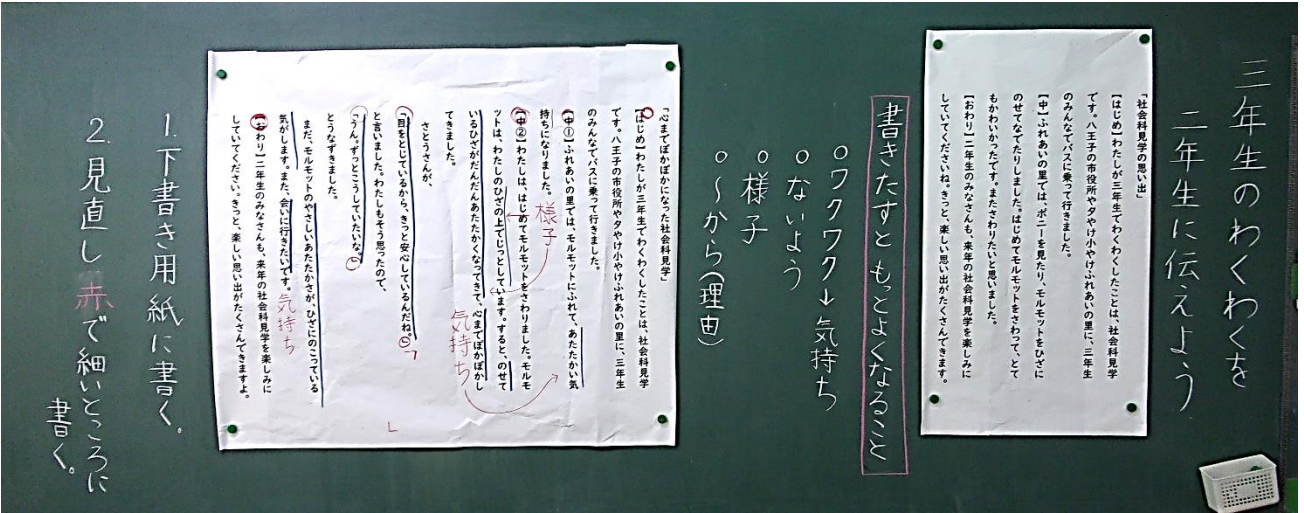 三年生のわくわくを
二年生に伝えよう
「社会科見学の思い出」
【はじめ】わたしが三年生でわくわくしたことは、社会科見学
です。八王子の市役所や夕やけ小やけふれあいの里に、三年生
のみんなでバスに乗って行きました。
【中】ふれあいの里では、ポニーを見たり、モルモットをひざに
のせてなでたりしました。はじめてモルモットをさわって、とて
もかわいかったです。またさわりたいと思いました。
【おわり】二年生のみなさんも、来年の社会科見学を楽しみに
していてくださいね。きっと、楽しい思い出がたくさんできます。
書きたすともっとよくなること
○ワクワク→気持ち
○ないよう
○様子
○〜から(理由)
「心までぽかぽかになった社会科見学」
【はじめ】わたしが三年生でわくわくしたことは、社会科見学
です。八王子の市役所や夕やけ小やけふれあいの里に、三年生
のみんなでバスに乗って行きました。
【中①】ふれあいの里では、モルモットにふれて、あたたかい気
持ちになりました。
様子
【中②】わたしは、はじめてモルモットをさわりました。モルモ
ットは、わたしのひざの上でじっとしています。すると、のせて
いるひざがだんだんあたたかくなってきて、心までぽかぽかし
てきました。
気持ち
さとうさんが、
「目をとじているから、きっと安心しているんだね。」
と言いました。わたしもそう思ったので、
「うん。ずっとこうしていたいな。」
とうなずきました。
まだ、モルモットのやさしいあたたかさが、ひざにのこっている
気がします。また、会いに行きたいです。
気持ち
【おわり】二年生のみなさんも、来年の社会科見学を楽しみに
していてください。きっと、楽しい思い出がたくさんできますよ。
1.下書き用紙に書く。
2.見直し赤で細いところに
書く。